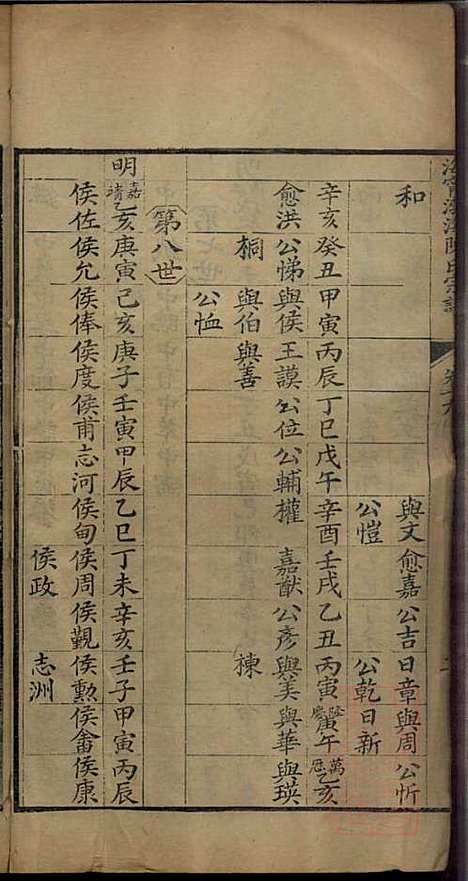 和 與文 愈嘉 公吉 日章 與周 公忻
公愷 公乾 日新
辛亥 癸丑 甲寅 丙辰 丁巳 戊午 辛酉 壬戌 乙丑 丙寅 隆慶 庚午 萬歷 乙亥
愈洪 公悌 與侯 王謨 公位 公輔 權 嘉猷 公彥 與美 與華 與瑛
桐 與伯 與善 棟
公恤
第八世
明 嘉靖 乙亥 庚寅 己亥 庚子 壬寅 甲辰 乙巳 丁未 辛亥 壬子 甲寅 丙辰
侯佐 侯允 侯俸 侯度 侯甫 志河 侯甸 侯周 侯覲 侯勲 侯畬 侯康
侯政 志洲